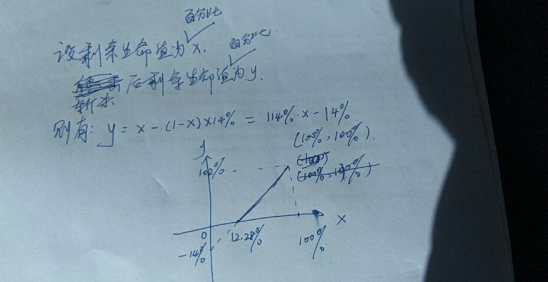 百分比
设剩余生命值为x.
百分比
斩杀后剩余生命值为y.
则有: y = x - (1-x)×14% = 114%·x - 14%
(100%, 100%)
y
100%
0
12.28%
100%
x
-14%